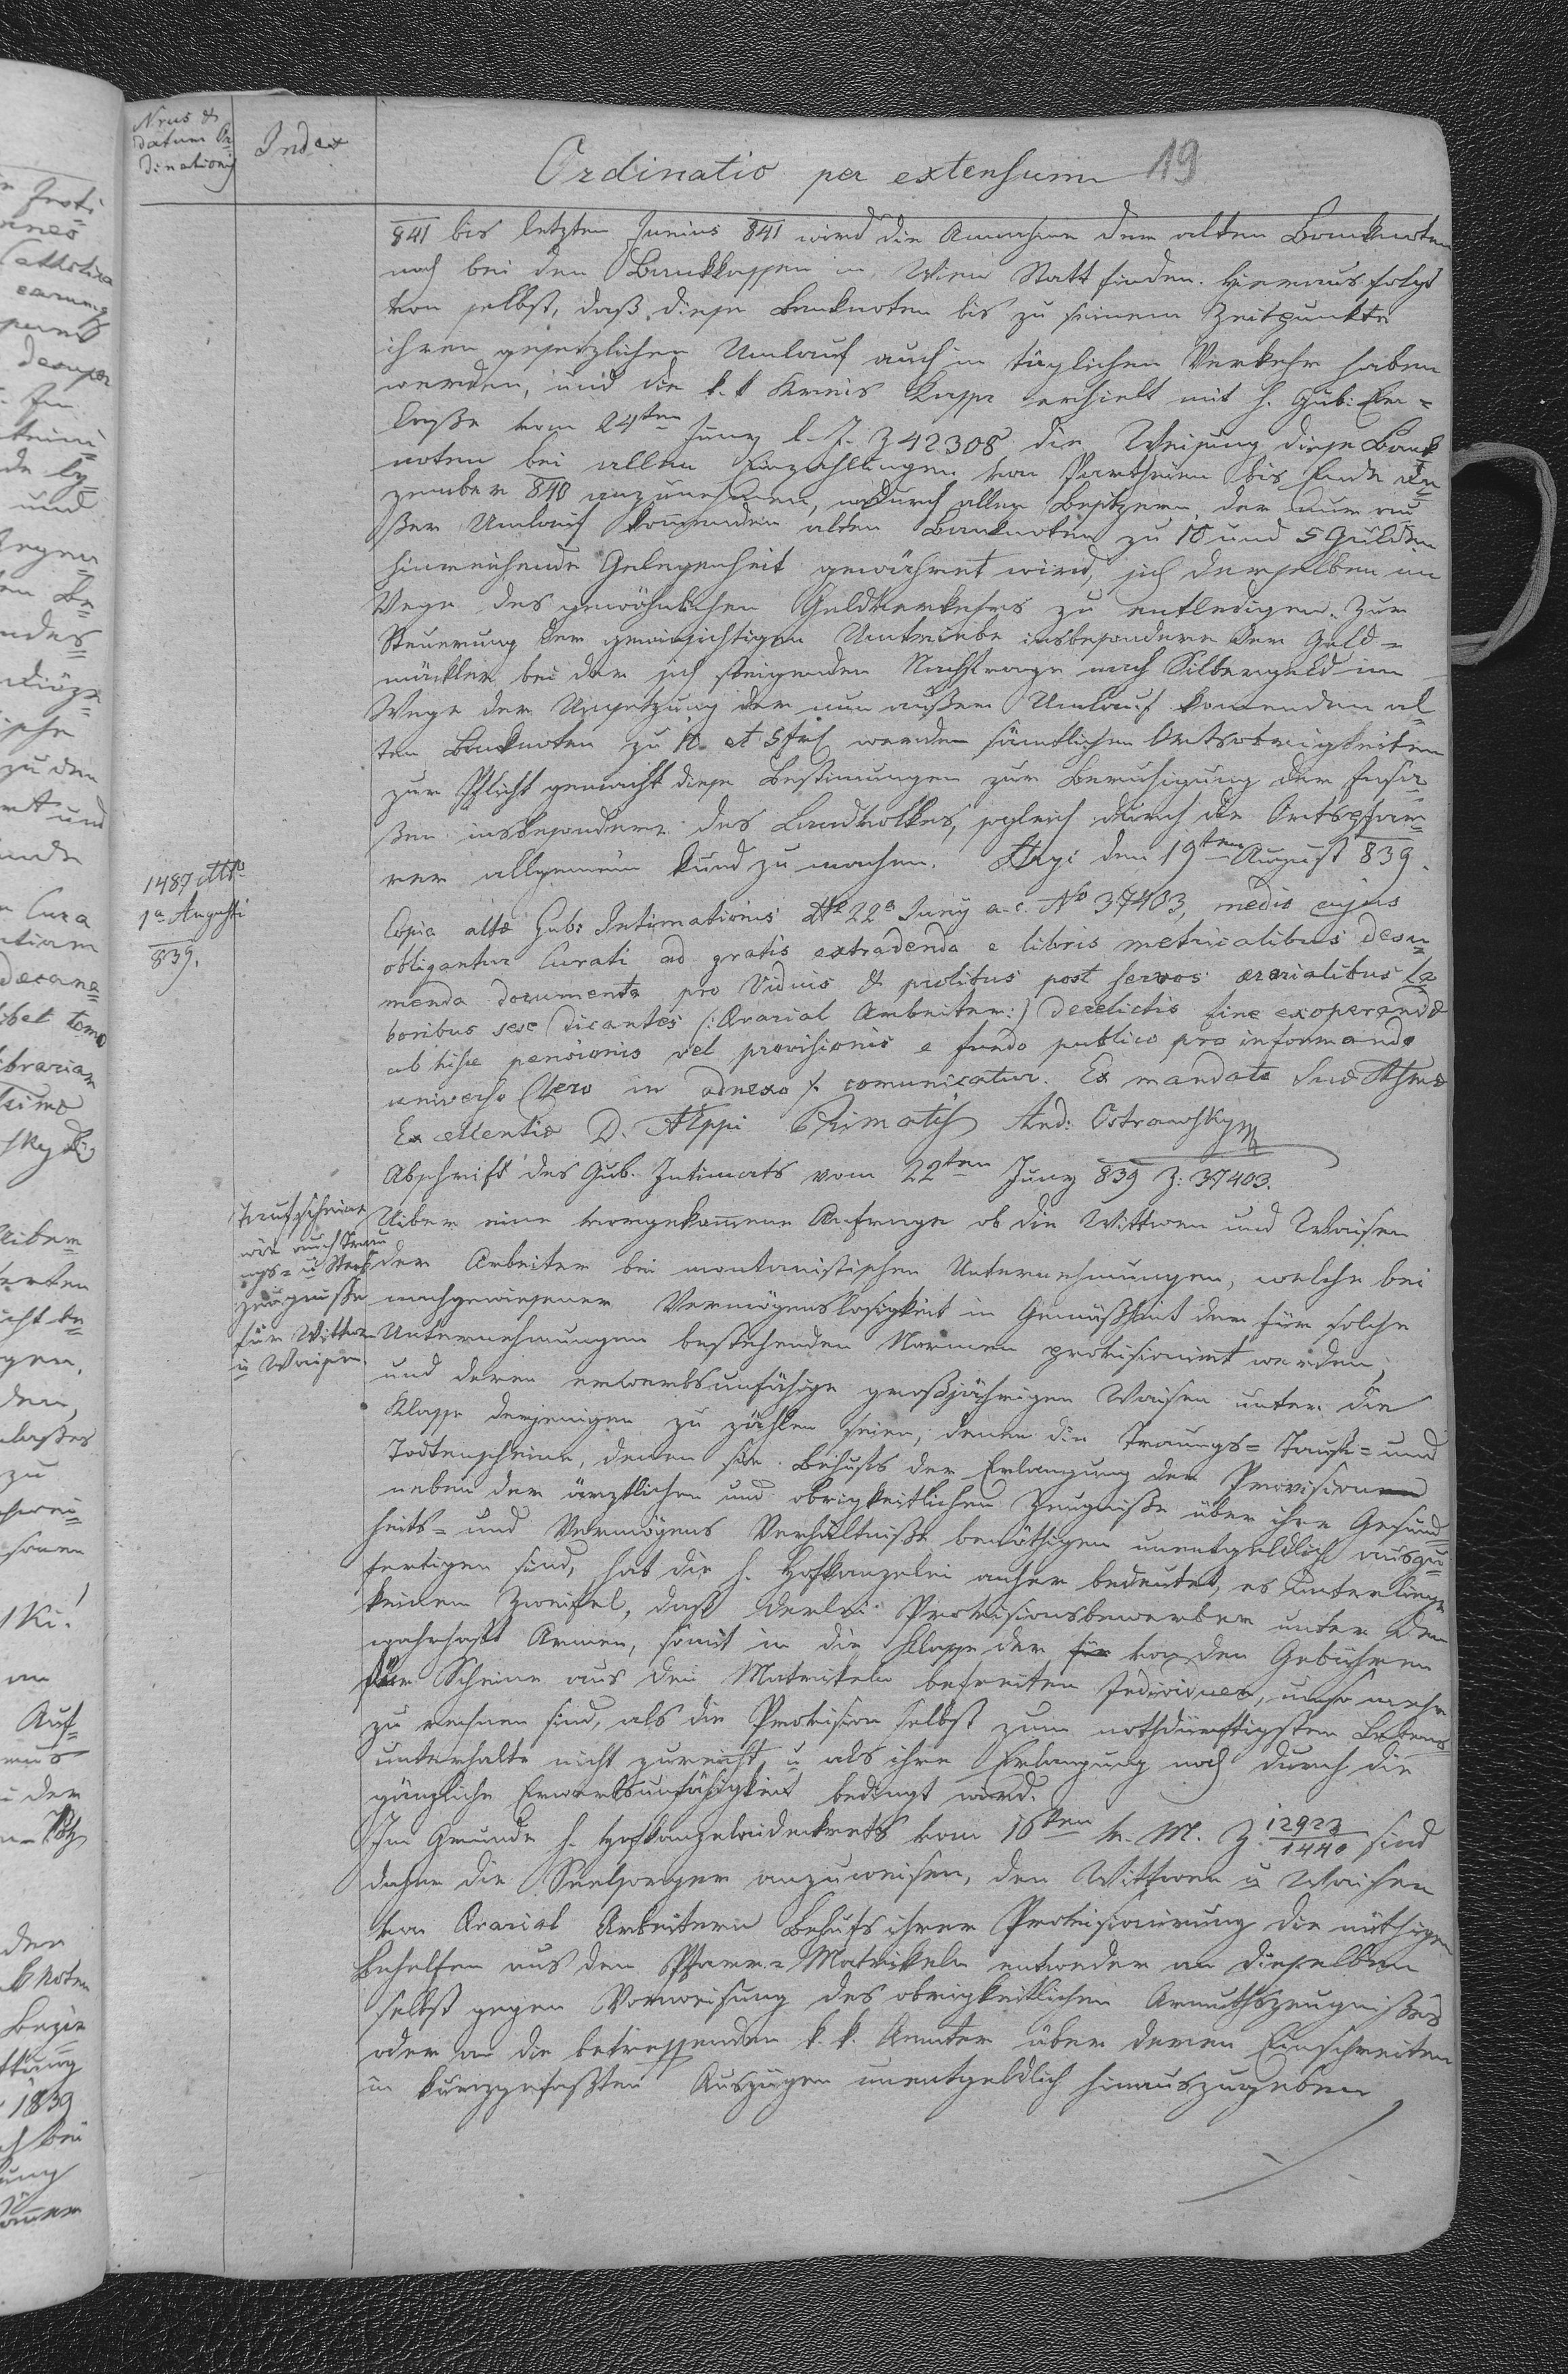 Nrus &
datum Or=
dinationis
Index
Ordinatio per extensum
19
841 bis letzten Junius 841 wird die Annahme der alten Banknoten
noch bei den Bankkassen in Wien Statt finden. Hieraus folgt
von selbst, daß diese Banknoten bis zu seinem Zeitpunkte
ihren gesetzlichen Umlauf auch im täglichen Verkehr haben
werden, und die k. k. Kreis Kasse erhielt mit h. Gub: Er=
laße vom 24ten Juny l. J. Z 42308 die Weisung diese Bank=
noten bei allen Einzahlungen von Partheien bis Ende De=
zember 840 anzunehmen, wodurch allen Besitzern der nun au=
ßer Umlauf kommenden alten Banknoten zu 10 und 5 Gulden
hinreichende Gelegenheit gewähret wird, sich derselben im
Wege des gewöhnlichen Geldverkehrs zu entledigen. Zur
Steuerung der gewinnsichtigen Umtriebe insbesondere der Geld=
mäckler bei der sich steigenden Nachfrage nach Silbergeld im
Wege der Umsetzung der nun außer Umlauf komenden al=
ten Banknoten zu 10 et 5 werden sämtlichen Ortsobrigkeiten
zur Pflicht gemacht diese Bestimungen zur Beruhigung der Insa=
ßen insbesondere des Landvolkes, sogleich durch die Ortspfar=
rer allgemein kund zu machen. Stryi den 19ten August 839.
1487
1a Augusti
839.
Copia altæ Gub: Intimationis 22a Juny a. c. No 37403, medio cujus
obligantur Curati ad gratis extradenda e libris metricalibus desu=
menda documenta pro Viduis & prolibus post servos ærarialibus la=
boribus sese dicantes (: Ærarial Arbeiter :) derelictis fine exoperandæ
ab hisce pensionis vel provisionis e fundo publico pro informando
universo Clero in adnexo ./. comunicatur. Ex mandato Suæ
Excellentiæ D. AEppi Primatis And: Ostrawsky
Abschrift des Gub. Intimats vom 22ten Juny 839 Z: 37403.
Taufscheine
wie auch Trau
ngs= u Sterb
zeugnisse
für Wittwen
u Waisen.
Uiber eine vorgekommene Anfrage ob die Wittwen und Waisen
der Arbeiter bei montanistischen Unternehmungen, welche bei
nachgewiesener Vermögenslosigkeit in Gemäßheit der für solche
Unternehmungen bestehenden Normen provisionirt werden,
und deren erwerbsunfähige großjährigen Waisen unter die
Klasse derjenigen zu zählen seien, denen die Trauungs= Tauf= und
Todtenscheine, deren sie Behufs der Erlangung der Provisionen
neben der ärztlichen und obrigkeitlichen Zeugniße über ihre Gesund=
heits= und Vermögens Verhältniße benöthigen unentgeldlich auszu=
fertigen sind, hat die h. Hofkanzelei anher bedeutet, es unterliege
keinem Zweifel, daß derlei Provisionsbewerber unter den
wahrhaft Armen, somit in die Klasse der für von den Gebühren
für Scheine aus den Matrikeln befreiten Individuen, umso mehr
zu rechnen sind, als die Provision selbst zum nothdürftigsten Lebens=
unterhalte nicht zureicht, u als ihre Erlangung noch durch die
gänzliche Erwerbsunfähigkeit bedingt wird.
Im Grunde h. Hofkanzeleidekrets vom 16ten v. M. Z. 12923/1440 sind
daher die Seelsorger anzuweisen, den Wittwen u Waisen
von Ærarial Arbeitern Behufs ihrer Provisionirung die nöthigen
Behelfen aus den Pfarr=Matrikeln entweder an dieselben
selbst gegen Vorweisung des obrigkeitlichen Armuthszeugnißes
oder an die betreffenden k. k. Aemter über deren Einschreiten
in kurzgefaßten Auszügen unentgeldlich hinauszugeben